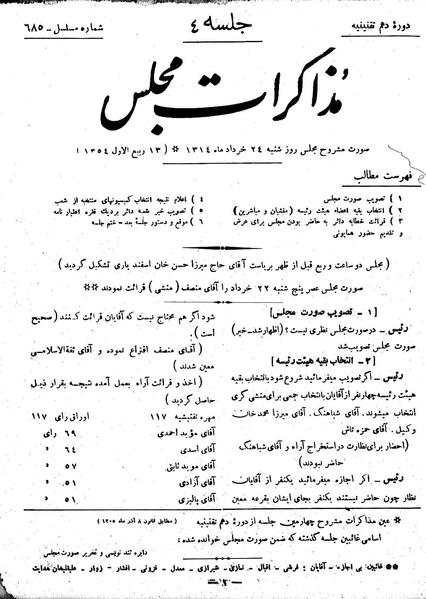 دورهٔ دهم تقنینیه
جلسه ۴
شماره مسلسل - ۶۸۵
مذاکرات مجلس
صورت مشروح مجلس روز شنبه ۲۴ خرداد ماه ۱۳۱۴ * (۱۳ ربیع الاول ۱۳۵۴)
فهرست مطالب
۱) تصویب صورت مجلس
۲) انتخاب بقیه اعضاء هیئت رئیسه (منشیان و مباشرین)
۳) قرائت خطابه دائر به حاضر بودن مجلس برای عرض
و تقدیم حضور همایونی
۴) اعلام نتیجه انتخاب کمیسیونهای منتخبه از شعب
۵) تصویب خبر شعبه دائر بردیک فقره اعتبار نامه
۶) موقع و دستور جلسهٔ بعد - ختم جلسه
(مجلس دو ساعت و ربع قبل از ظهر بریاست آقای حاج میرزا حسن خان اسفند یاری تشکیل گردید)
صورت مجلس عصر پنج شنبه ۲۲ خرداد را آقای منصف (منشی) قرائت نمودند
[۱ - تصویب صورت مجلس]
رئیس - در صورت مجلس نظری نیست؟ (اظهار شد - خیر)
صورت مجلس تصویب شد
[۲ - انتخاب بقیه هیئت رئیسه]
رئیس - اگر تصویب میفرمائید شروع شود بانتخاب بقیه
هیئت رئیسه چهار نفر از آقایان بانتخاب جمعی برای منشی گری
انتخاب میشوند. آقای شباهنگ. آقای میرزا محمد خان
وکیل. آقای حمزه تاش
(احضار برای نظارت در استخراج آراء و آقای شباهنگ
حاضر نبودند)
رئیس - اگر اجازه میفرمائید یکنفر از آقایان
نظار چون حاضر نیستند یکنفر بجای ایشان بقرعه معین
شود اگر هم محتاج نیست که آقایان قرائت کنند (صحیح
است).
(آقای منصف اقتراع نموده و آقای ثقةالاسلامی
معین شدند)
(اخذ و قرائت آراء بعمل آمده نتیجه بقرار ذیل
حاصل گردید)
مهره تفتیشیه ۱۱۷ اوراق رأی ۱۱۷
آقای مؤید احمدی ۶۹ رأی
آقای اسدی ۶۴ »
آقای مؤید ثابتی ۵۷ »
آقای آزادی ۵۱ »
آقای پالیزی ۵۱ »
* عین مذاکرات مشروح چهارمین جلسه از دورهٔ دهم تقنینیه (مطابق قانون ۸ آذر ماه ۱۳۰۵)
دایره تند نویسی و تحریر صورت مجلس
اسامی غائبین جلسه گذشته که ضمن صورت مجلس خوانده شده:
* غائبین بی اجازه - آقایان: قرشی - اقبال - نمازی - شیرازی - معدل - نزونی - افشار - زوار - علیقلیخان هدایت